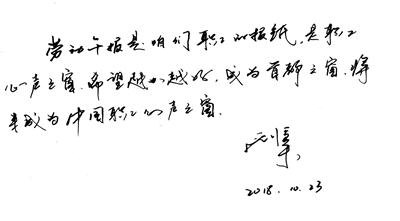 劳动午报是咱们职工的报纸，是职工
心声之窗，希望越办越好，成为首都之窗，将
来成为中国职工心声之窗。
2018.10.23